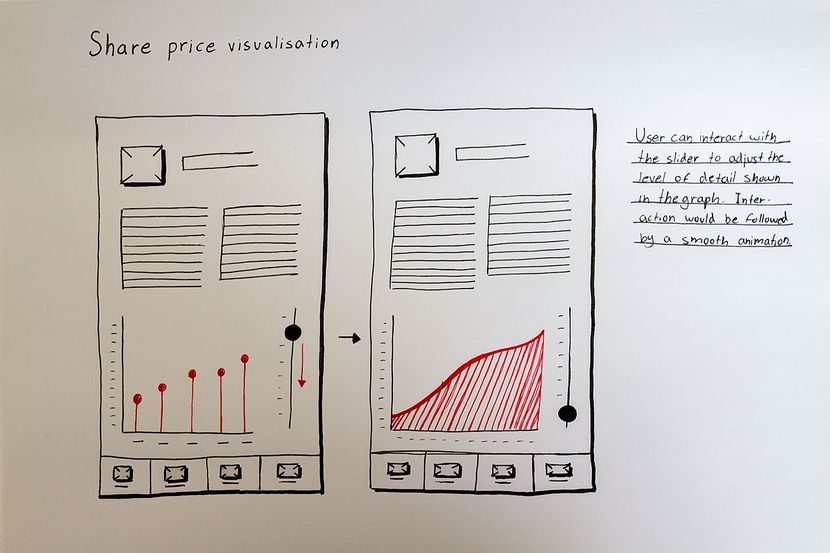 Share price visualisation
User can interact with
the slider to adjust the
level of detail shown
in the graph. Inter-
action would be followed
by a smooth animation.